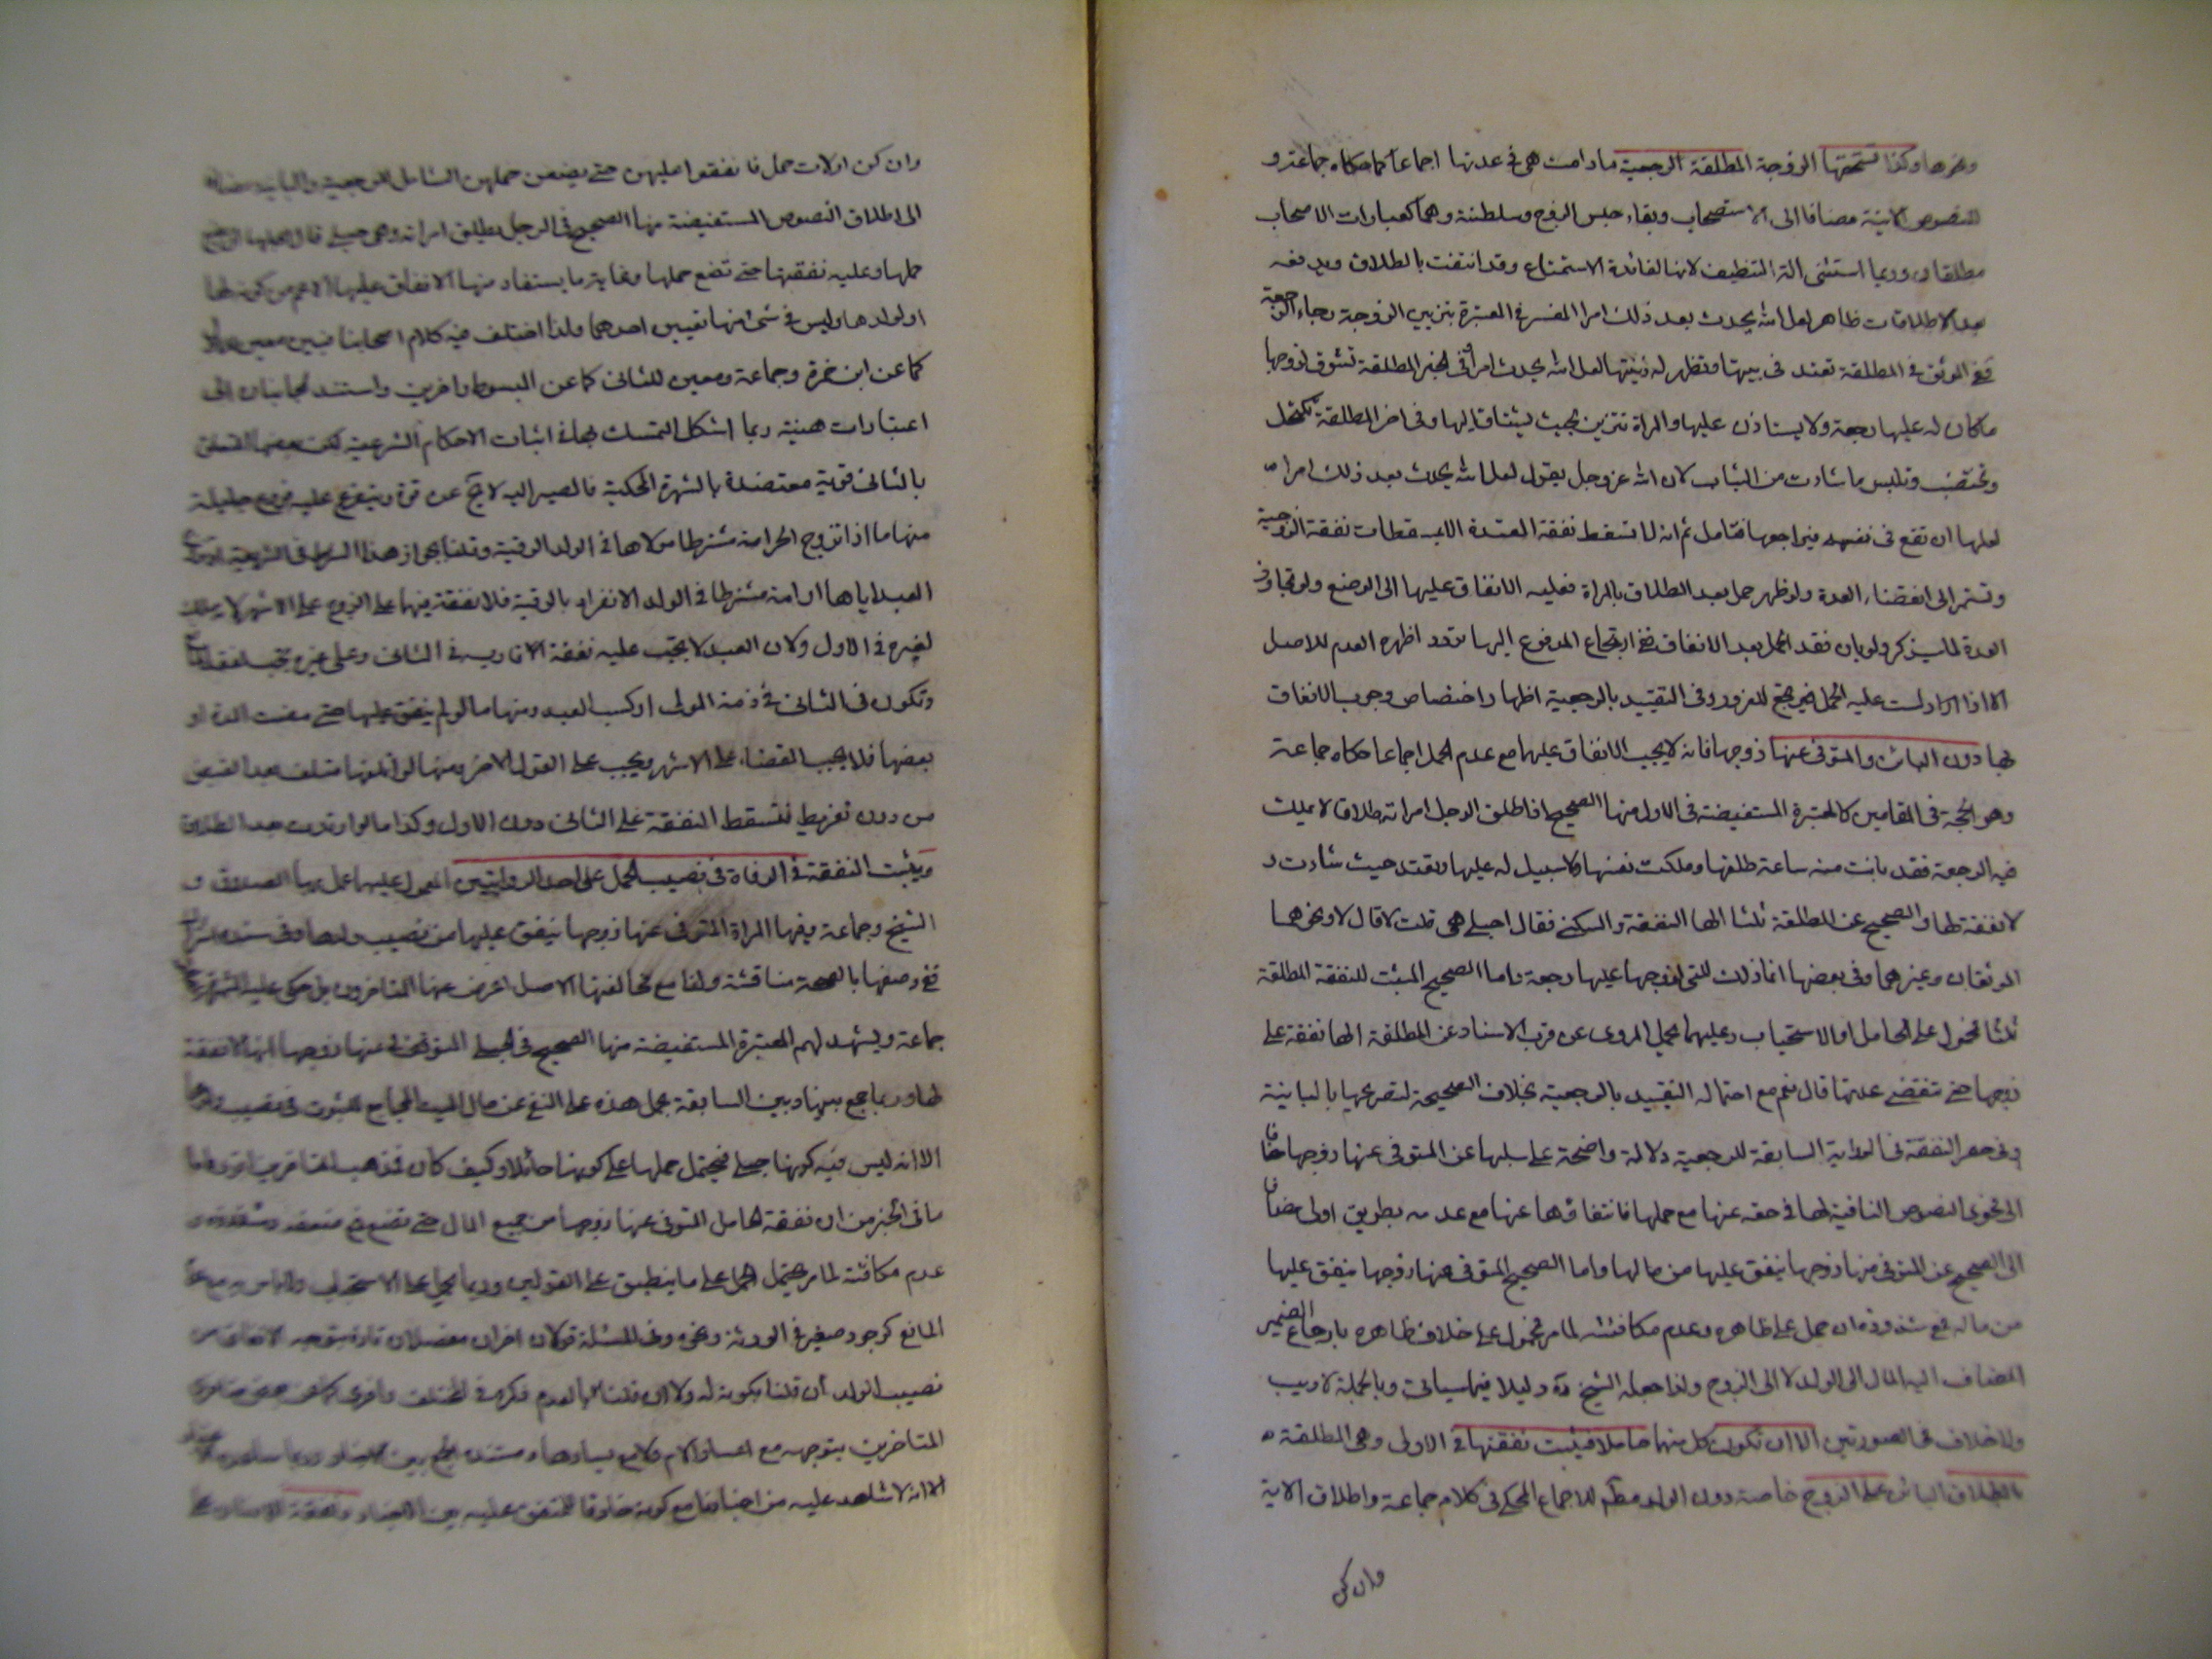 وغيرها وكذا تستحقها الزوجة المطلقة الرجعية مادامت هى فى عدتها اجماعا كما حكاه جماعة و
للنصوص الاتية مضافا الى الاستصحاب وبقاء حبس الزوج وسلطنته وهما كعبارات الاصحاب
مطلقان وربما استثنى الة التنظيف لانها لفائدة الاستمتاع وقد انتفت بالطلاق ويدفعه
بعد الاطلاقات ظاهر لعل الله يحدث بعد ذلك امرا المفسر فى المعتبرة بتزيين الزوجة رجاء الرجعة
ففى الموثق فى المطلقة تعتد فى بيتها وتظهر له زينتها لعل الله يحدث امرا وفى الخبر المطلقة تشوق لزوجها
ما كان له عليها رجعة ولا يستاذن عليها والمراة تتزين بحيث يشتاق اليها وفى اخر المطلقة تكتحل
وتختضب وتلبس ما شاءت من الثياب لان الله عز وجل يقول لعل الله يحدث بعد ذلك امرا
لعلها ان تقع فى نفسه فيراجعها فتامل ثم انه لا تسقط نفقة المعتدة الا بمسقطات نفقة الزوجية
وتستمر الى انقضاء العدة ولو ظهر حمل بعد الطلاق بالمراة فعليه الانفاق عليها الى الوضع ولو تجاوز
العدة لما سيذكر ولو بان فقد الحمل بعد الانفاق ففى ارتجاع المدفوع اليها تردد اظهره العدم للاصل
الا اذا دلست عليه الحمل فيرتجع للغرور وفى التقييد بالرجعية اظهار اختصاص وجوب الانفاق
بها دون البائن والمتوفى عنها زوجها فانه لا يجب الانفاق عليها مع عدم الحمل اجماعا حكاه جماعة
وهو الحجة فى المقامين كالمعتبرة المستفيضة فى الاول منها الصحيح اذا طلق الرجل امراته طلاقا لا يملك
فيه الرجعة فقد بانت منه ساعة طلقها وملكت نفسها ولا سبيل له عليها وتعتد حيث شاءت و
لا نفقة لها والصحيح عن المطلقة ثلثا الها النفقة والسكنى فقال احبلى هى قلت لا قال لا ونحوهما
الموثقان وغيرهما وفى بعضها انما ذلك للتى لزوجها عليها رجعة واما الصحيح المثبت للنفقة المطلقة
ثلثا فمحمول على الحامل او الاستحباب وعليهما يحمل المروى عن قرب الاسناد عن المطلقة الها نفقة على
زوجها حتى تنقضى عدتها قال نعم مع احتماله التقييد بالرجعية بخلاف الصحيحة لتصريحها بالبائنة
وفى حصر النفقة فى الرواية السابقة للرجعية دلالة واضحة على سلبها عن المتوفى عنها زوجها مضافا
الى فحوى النصوص النافية لها فى حقه عنها مع حملها فانتفاؤها عنها مع عدمه بطريق اولى مضافا
الى الصحيح عن المتوفى عنها زوجها ينفق عليها من مالها واما الصحيح المتوفى عنها زوجها ينفق عليها
من ماله فمع شذوذه ان حمل على ظاهره وعدم مكافئته لما مر محمول على خلاف ظاهره بارجاع الضمير
المضاف اليه المال الى الولد لا الى الزوج ولذا جعله الشيخ ره دليلا فيما سياتى وبالجملة لا ريب
ولا خلاف فى الصورتين الا ان تكون كل منهما حاملا فيثبت نفقتها فى الاولى وهى المطلقة
بالطلاق البائن على الزوج خاصة دون الولد مطم للاجماع المحكى فى كلام جماعة واطلاق الاية
وان كن
وان كن اولات حمل فانفقوا عليهن حتى يضعن حملهن الشامل للرجعية والبائنة مضافا
الى اطلاق النصوص المستفيضة منها الصحيح فى الرجل يطلق امراته وهى حبلى قال اجلها ان تضع
حملها وعليه نفقتها حتى تضع حملها وغاية ما يستفاد منها الانفاق عليها الاعم من كونه لها
او لولدها وليس فى شئ منها تعيين احدهما ولذا اختلف فيه كلام اصحابنا فبين معين للاول
كما عن ابن حمزة وجماعة ومعين للثانى كما عن المبسوط واخرين واستند الجانبان الى
اعتبارات هينة ربما اشكل التمسك بها فى اثبات الاحكام الشرعية لكن بعضها المتعلق
بالثانى قوية معتضدة بالشهرة المحكية فالمصير اليه لا يخ عن قوة ويتفرع عليه فروع جليلة
منها ما اذا تزوج الحر امة مشترطا مولاها فى الولد الرقية وقلنا بجواز هذا الشرط فى الشريعة او تزوج
العبد اياها او امة مشترطا فى الولد الانفراد بالرقية فلا نفقة فيهما على الزوج على الاشهر لا يملك
لغيره فى الاول ولان العبد لا يجب عليه نفقة الاقارب فى الثانى وعلى غيره تجب لفقدهما
وتكون فى الثانى فى ذمة المولى او كسب العبد ومنها ما لو لم ينفق عليها حتى مضت المدة او
بعضها فلا يجب القضاء على الاشهر ويجب على القول الاخر ومنها لو اتلفها متلف بعد القبض
من دون تفريط فتسقط النفقة على الثانى دون الاول وكذا ما لو ارتدت بعد الطلاق
ويثبت النفقة فى الوفاة فى نصيب الحمل على احدى الروايتين المعمول عليها عمل بها الصدوق و
الشيخ وجماعة وفيها المراة المتوفى عنها زوجها ينفق عليها من نصيب ولدها وفى سنده
ففى وصفها بالصحة مناقشة ولذا مع مخالفتها الاصل اعرض عنها المتاخرون بل حكى عليه الشهرة
جماعة ويشهد لهم المعتبرة المستفيضة منها الصحيح فى الحبلى المتوفى عنها زوجها انه لا نفقة
لها وربما جمع بينها وبين السابقة بحمل هذه على النفى عن مال الميت المجامع للثبوت فى نصيب ولدها
الا انه ليس فيه كونها حبلى فيحتمل حملها على كونها حائلا وكيف كان فمذهب المتاخرين اقوى واما
ما فى الخبر من ان نفقة الحامل المتوفى عنها زوجها من جميع المال حتى تضع فمع ضعفه وشذوذه و
عدم مكافئته لما مر يحتمل الحمل على ما ينطبق على القولين وربما يحمل على الاستحباب ولا باس به مع عدم
المانع كوجود صغير فى الورثة ونحوه وفى المسئلة قولان اخران مفصلان تارة بتوجه الانفاق من
نصيب الولد ان قلنا بكونه له ولا ان قلنا بالعدم ذكره فى المختلف واخرى
المتاخرين بتوجهه مع اعسار الام ولا مع يسارها ومستنده الجمع بين الاخبار
الا انه لا شاهد عليه من اخبارنا مع كونه خارقا للمتفق عليه بين الاخبار ونفقة